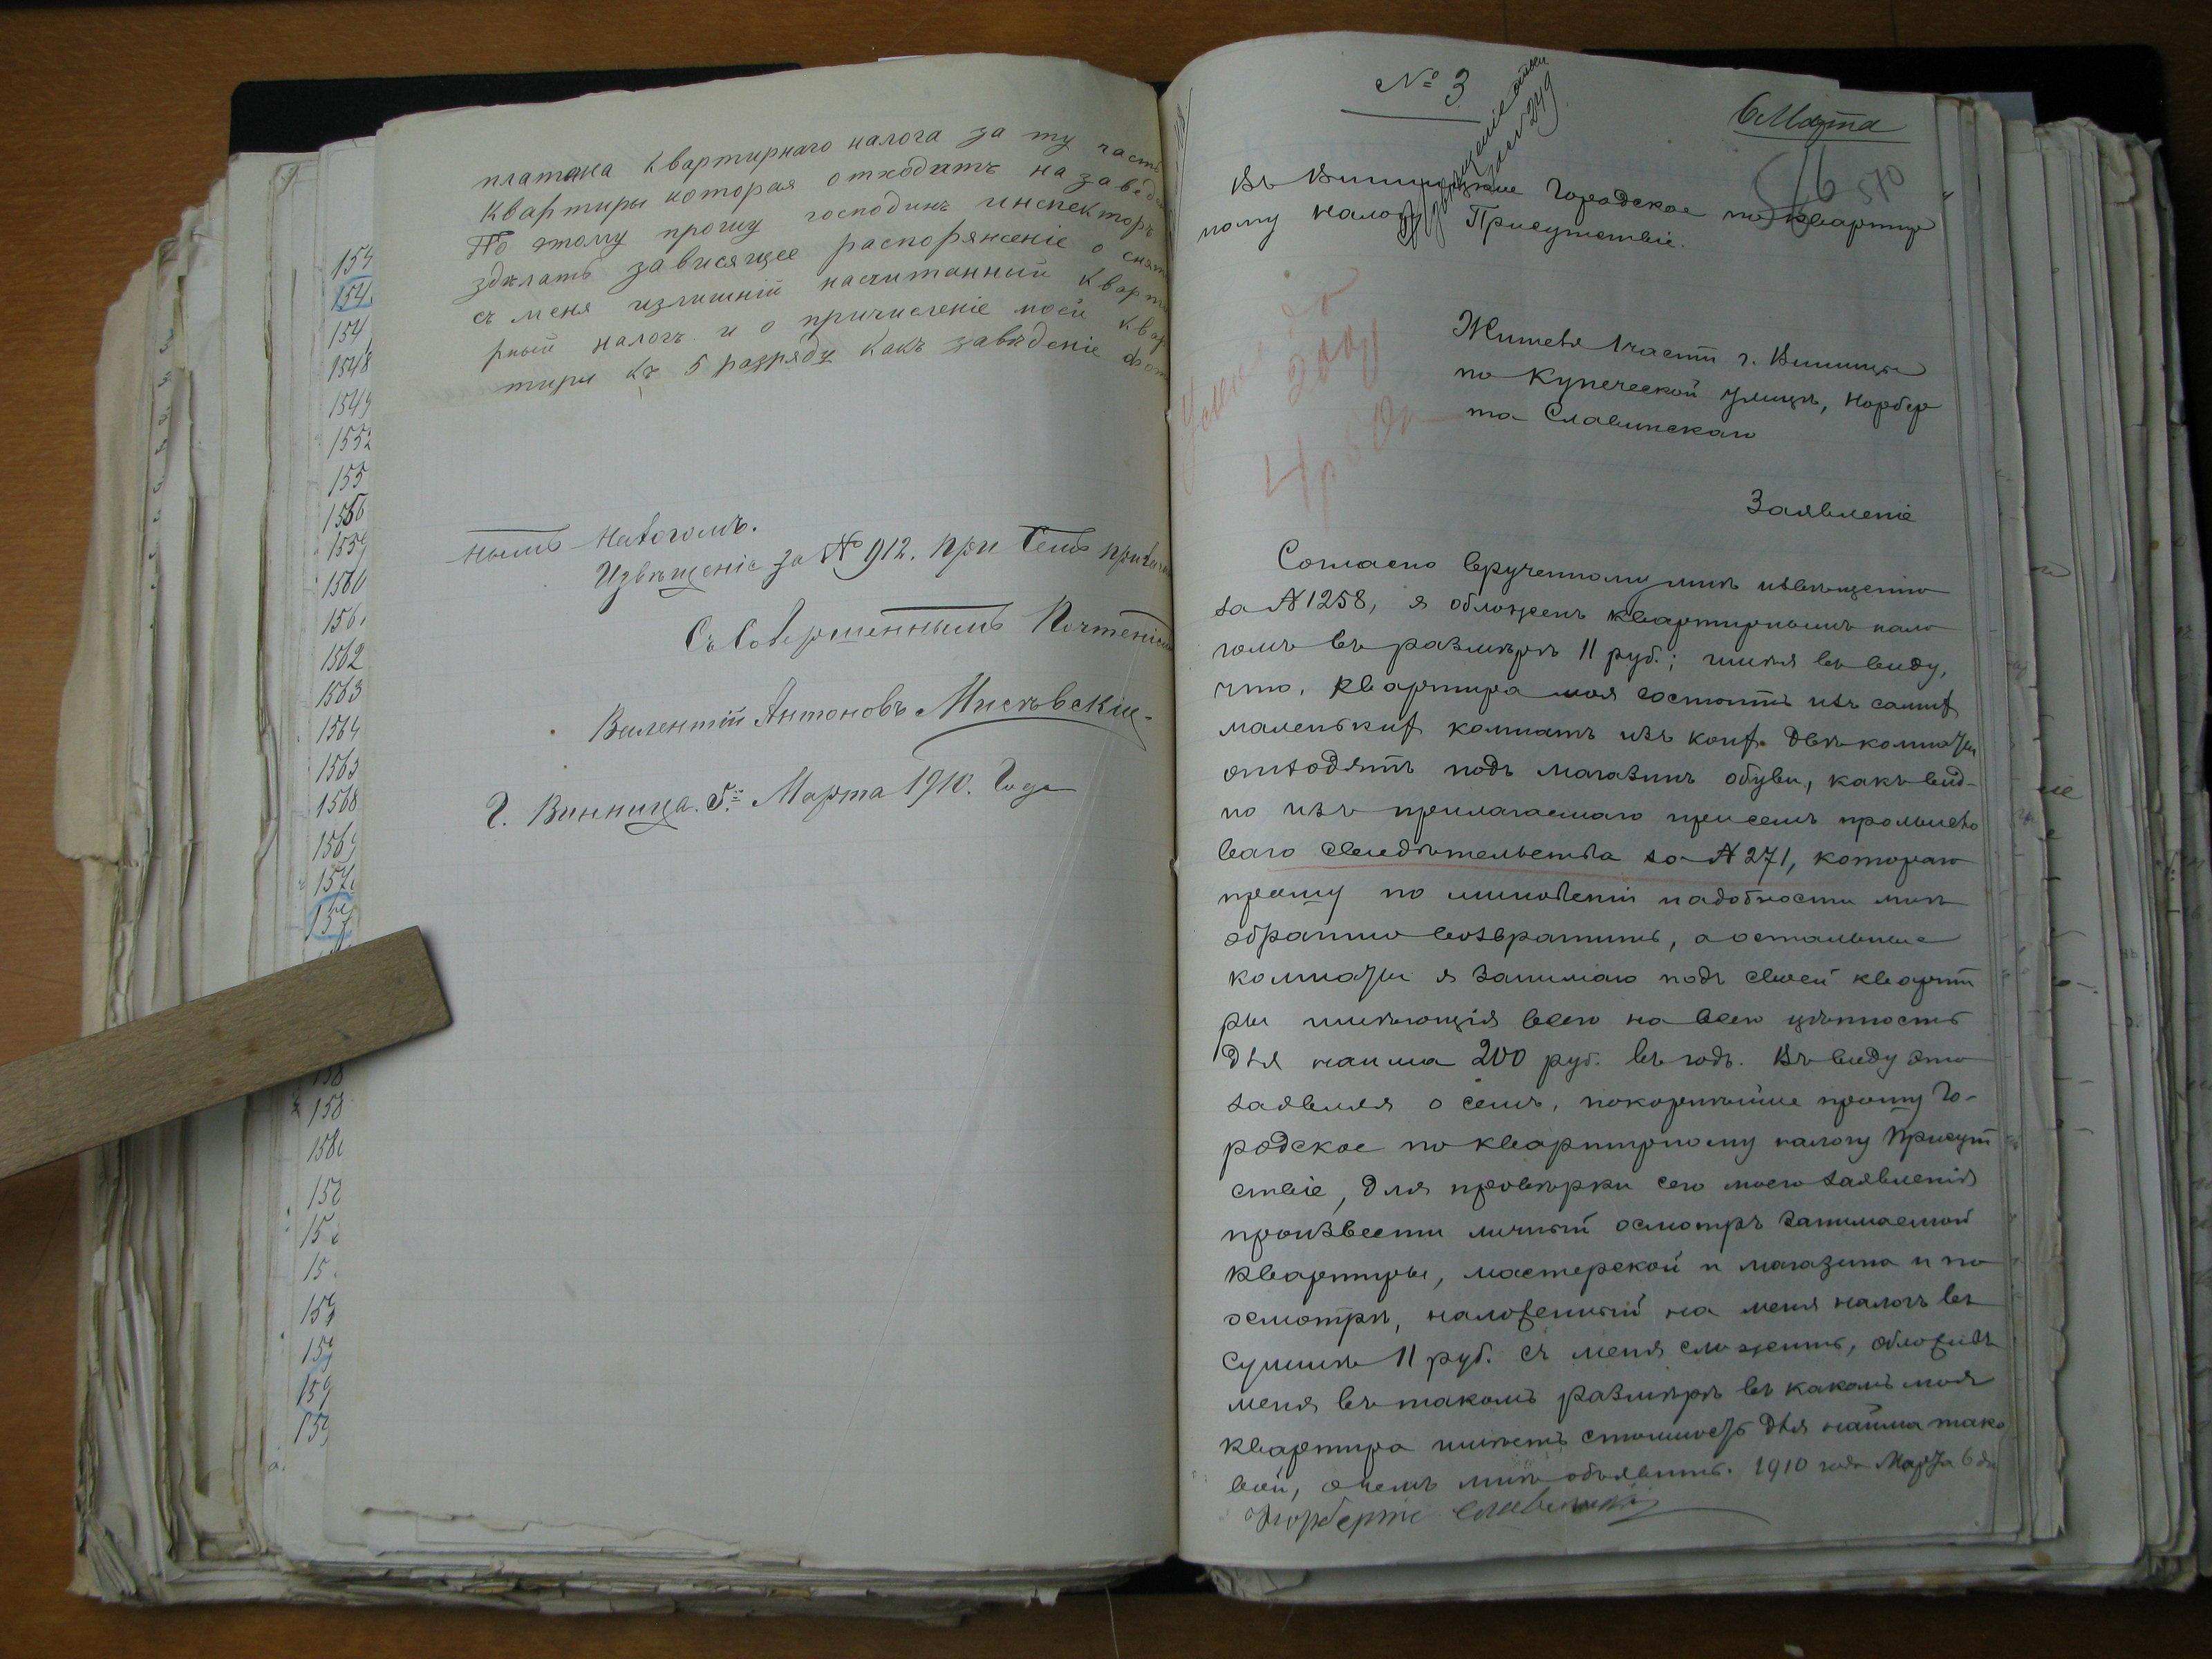 платежа квартирнаго налога за ту часть
квартиры которая отходитъ на завѣде
По этому прошу господинъ инспекторъ
зделать зависящее распоряженіе о снят
съ меня излишній насчитанный кварти
рный налогъ и о причисленіе моей квар
тиры къ 5 разряду какъ завѣденіе
нымъ налогомъ.
Извѣщеніе за № 912. при семъ
Съ Совершеннымъ Почтеніемъ
Валентій Антоновъ
Г. Винница. 5го Марта 1910. Года
154
154
1548
1549
1552
155
1556
1559
1560
156
1562
1563
1564
1565
1568
1569
157
158
158
158
15
15
159
159
159
159
№ 3
6 Марта
516 570
Въ Винницкое Городское по квартир
ному налогу Присутствіе.
до
200 р
4 р 50 к
Жителя 1 части г. Винницы
по Купеческой улицѣ, Норбер
та Славинскаго
Заявленіе
Согласно врученному мнѣ извѣщенію
за № 1258, я обложенъ квартирнымъ нало
гомъ въ размѣрѣ 11 руб.; имѣя въ виду,
что, квартира моя состоитъ изъ самых
маленьких комнатъ изъ коих двѣ комнаты
отходятъ подъ магазинъ обуви, какъ вид-
но изъ прилагаемаго при семъ промысло
ваго свидѣтельства за № 271, котораго
прошу по минованіи надобности мнѣ
обратно возвратить, а остальные
комнаты я занимаю подъ своей кварти
ры имѣющія всего на всего цѣнность
для найма 200 руб. въ годъ. Въ виду этого
заявляя о семъ, покорнѣйше прошу Го-
родское по квартирному налогу Присут
ствіе, для провѣрки сего моего заявленія
произвести личный осмотръ занимаемой
квартиры, мастерской и магазина и по
осмотрѣ, наложенный на меня налогъ въ
суммѣ 11 руб. съ меня сложить, обложивъ
меня въ такомъ размѣрѣ въ какомъ моя
квартира имѣетъ стоимость для найма тако
вой, о чемъ мнѣ объявить. 1910 года Марта 6 дня
Норбертъ Славинскій